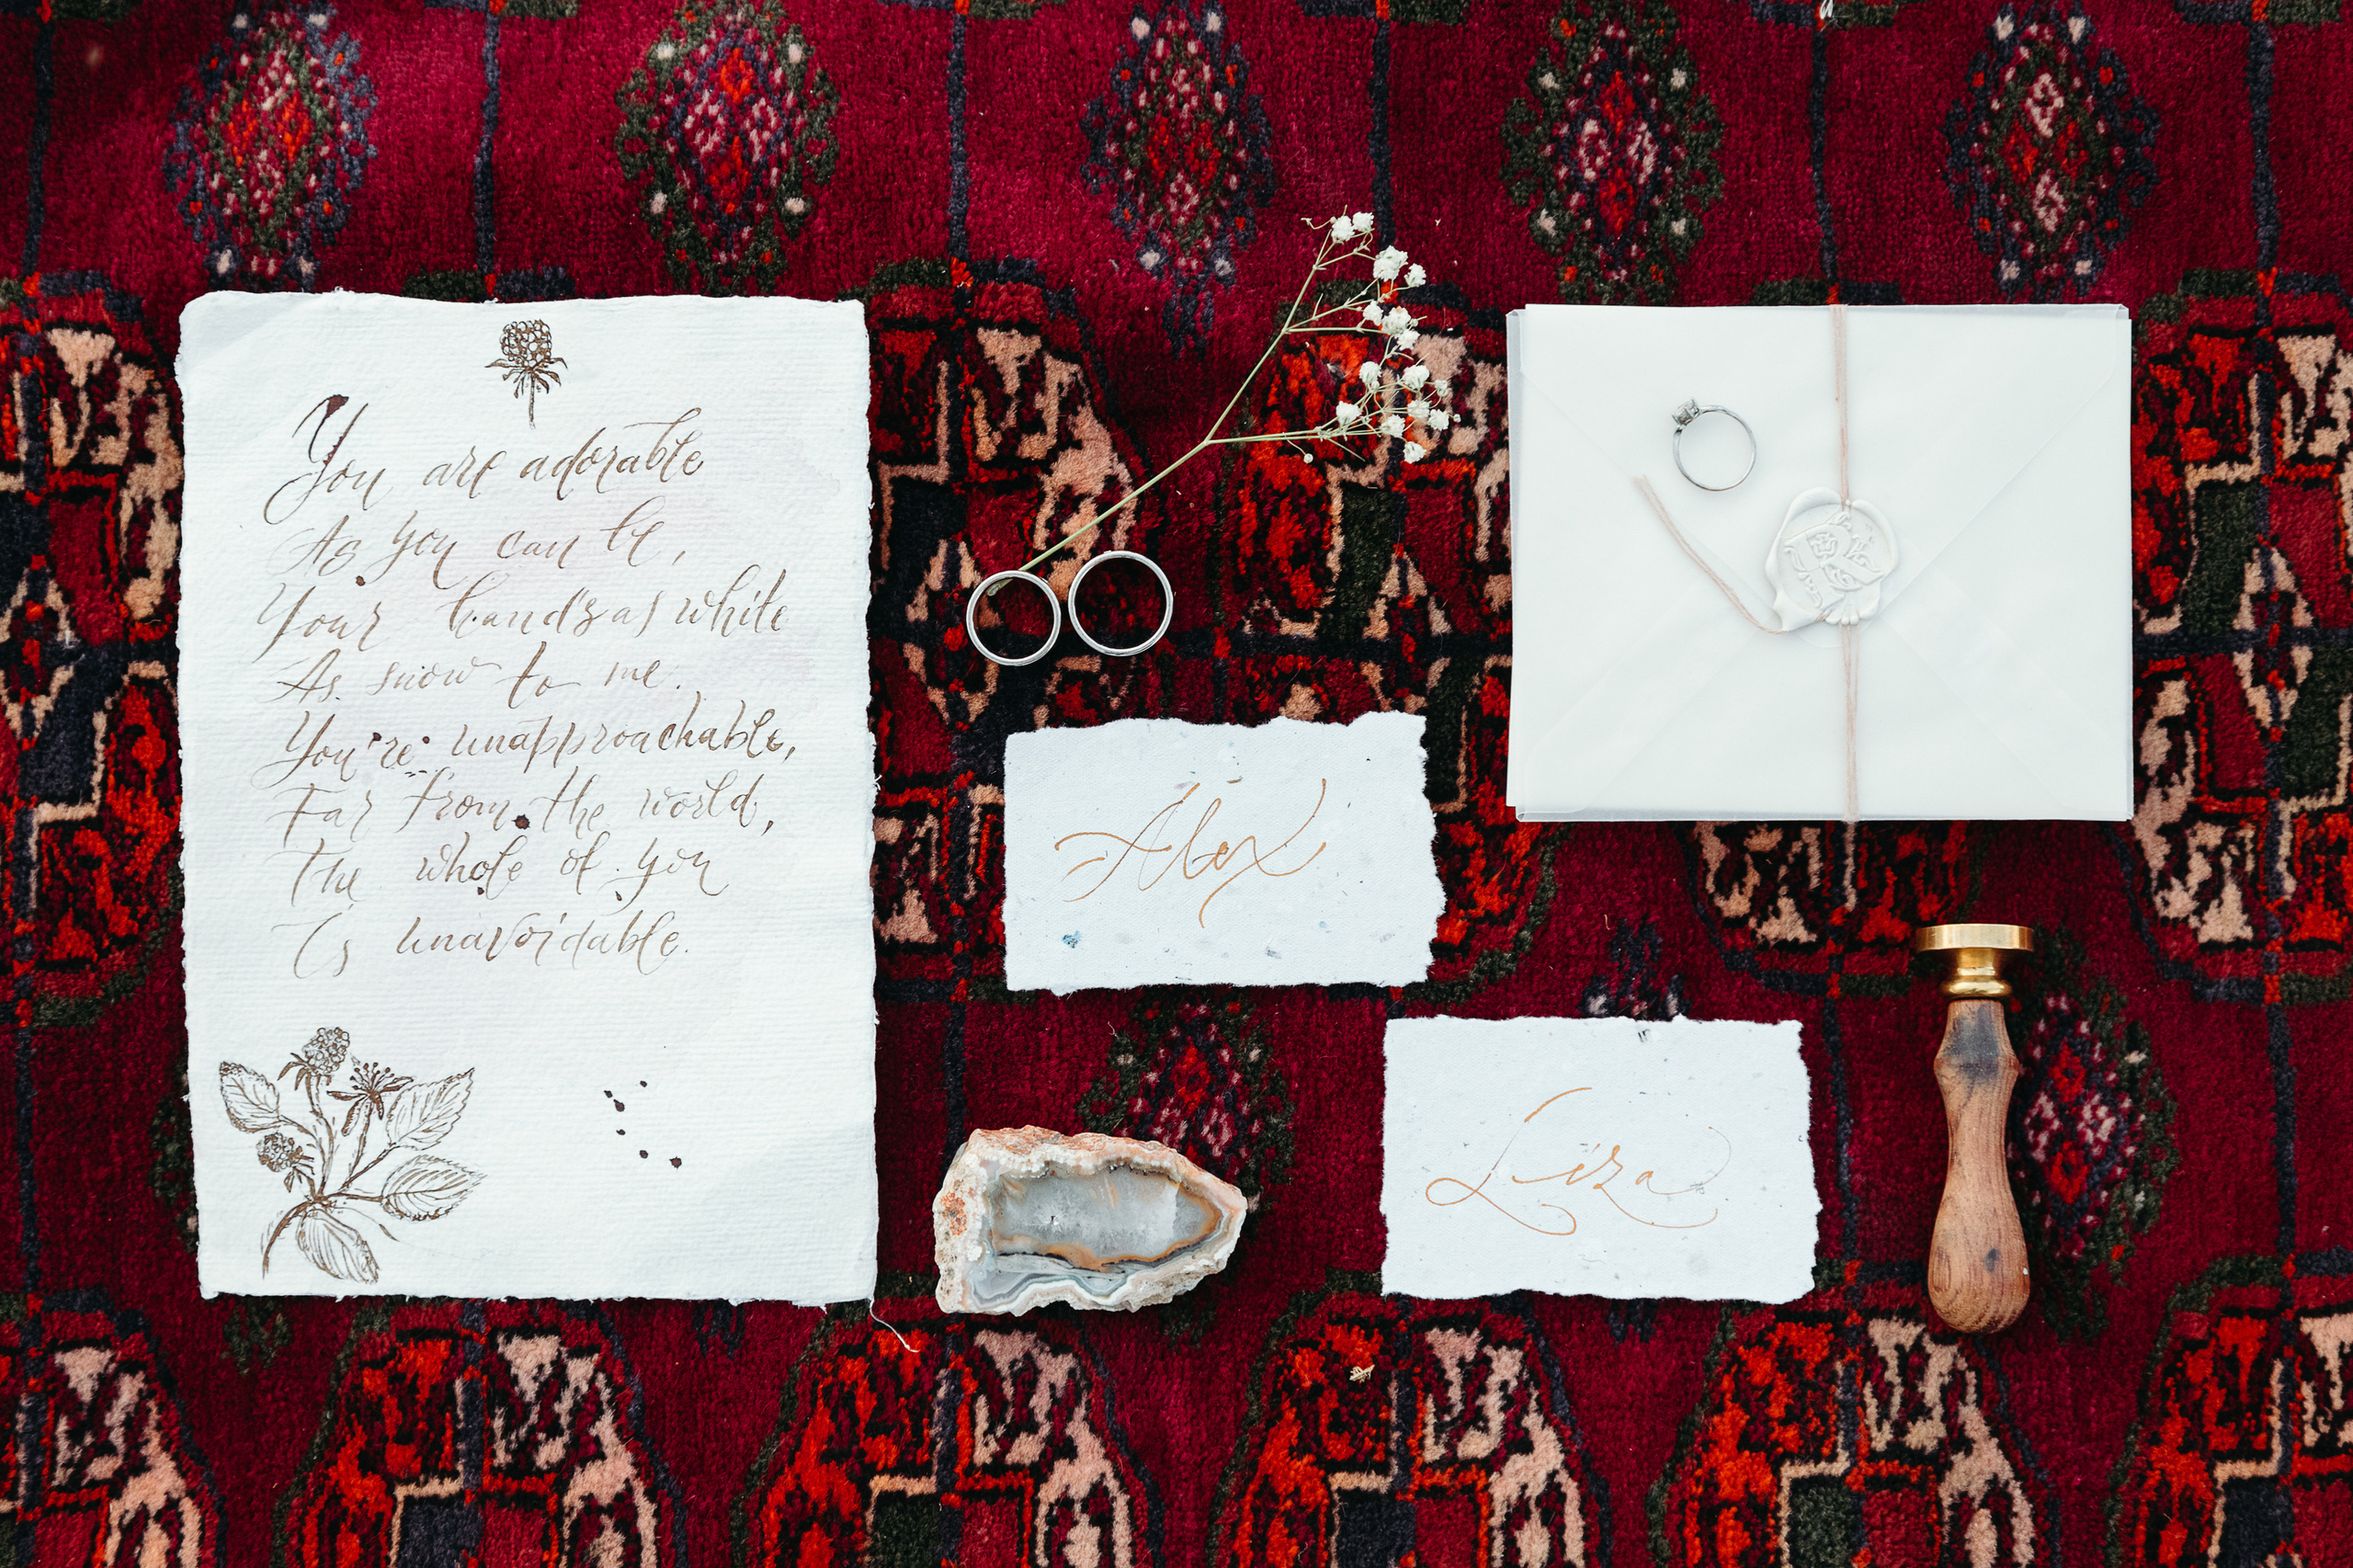 You are adorable
As you can be,
Your hands as white
As snow to me.
You're unapproachable,
Far from the world,
The whole of you
Is unavoidable.
Alex
Liza